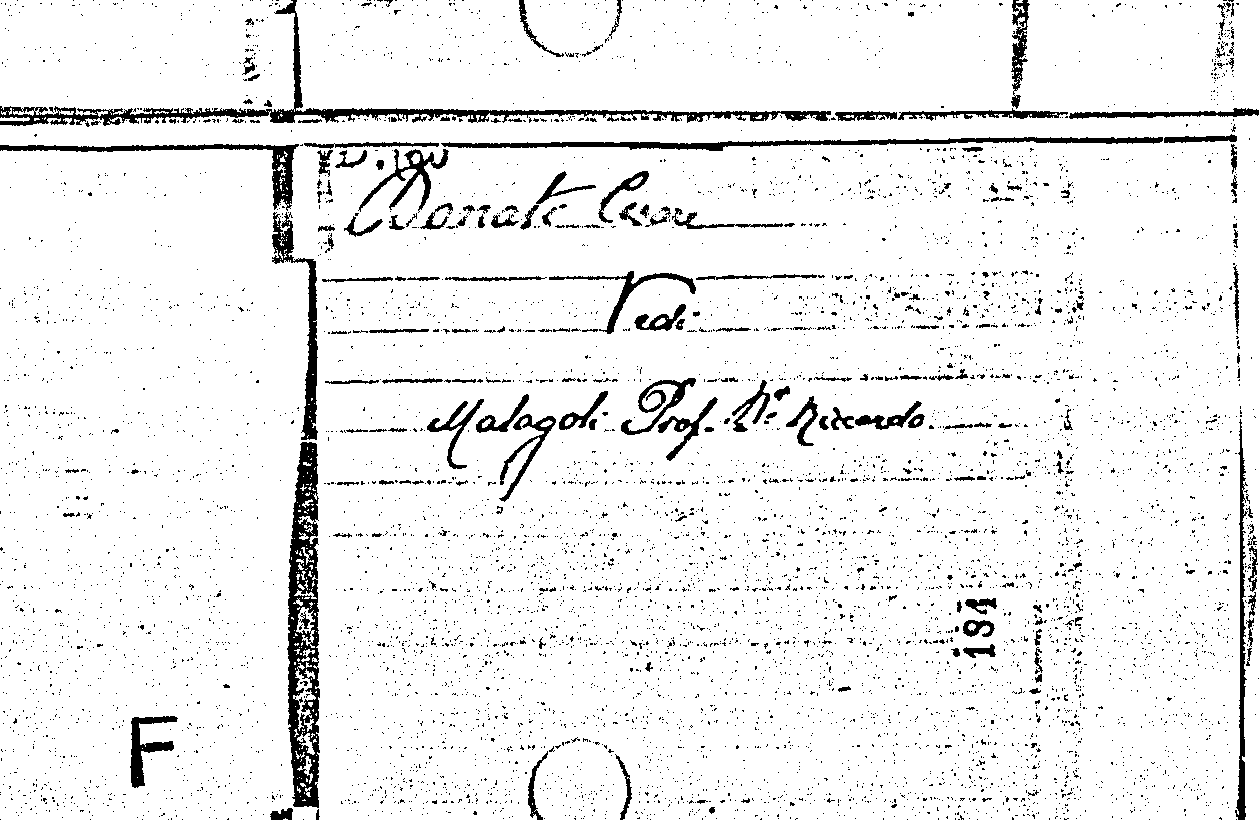 Donati Cesare
Vedi
Malagoli Prof. Dr. Riccardo.
194
F